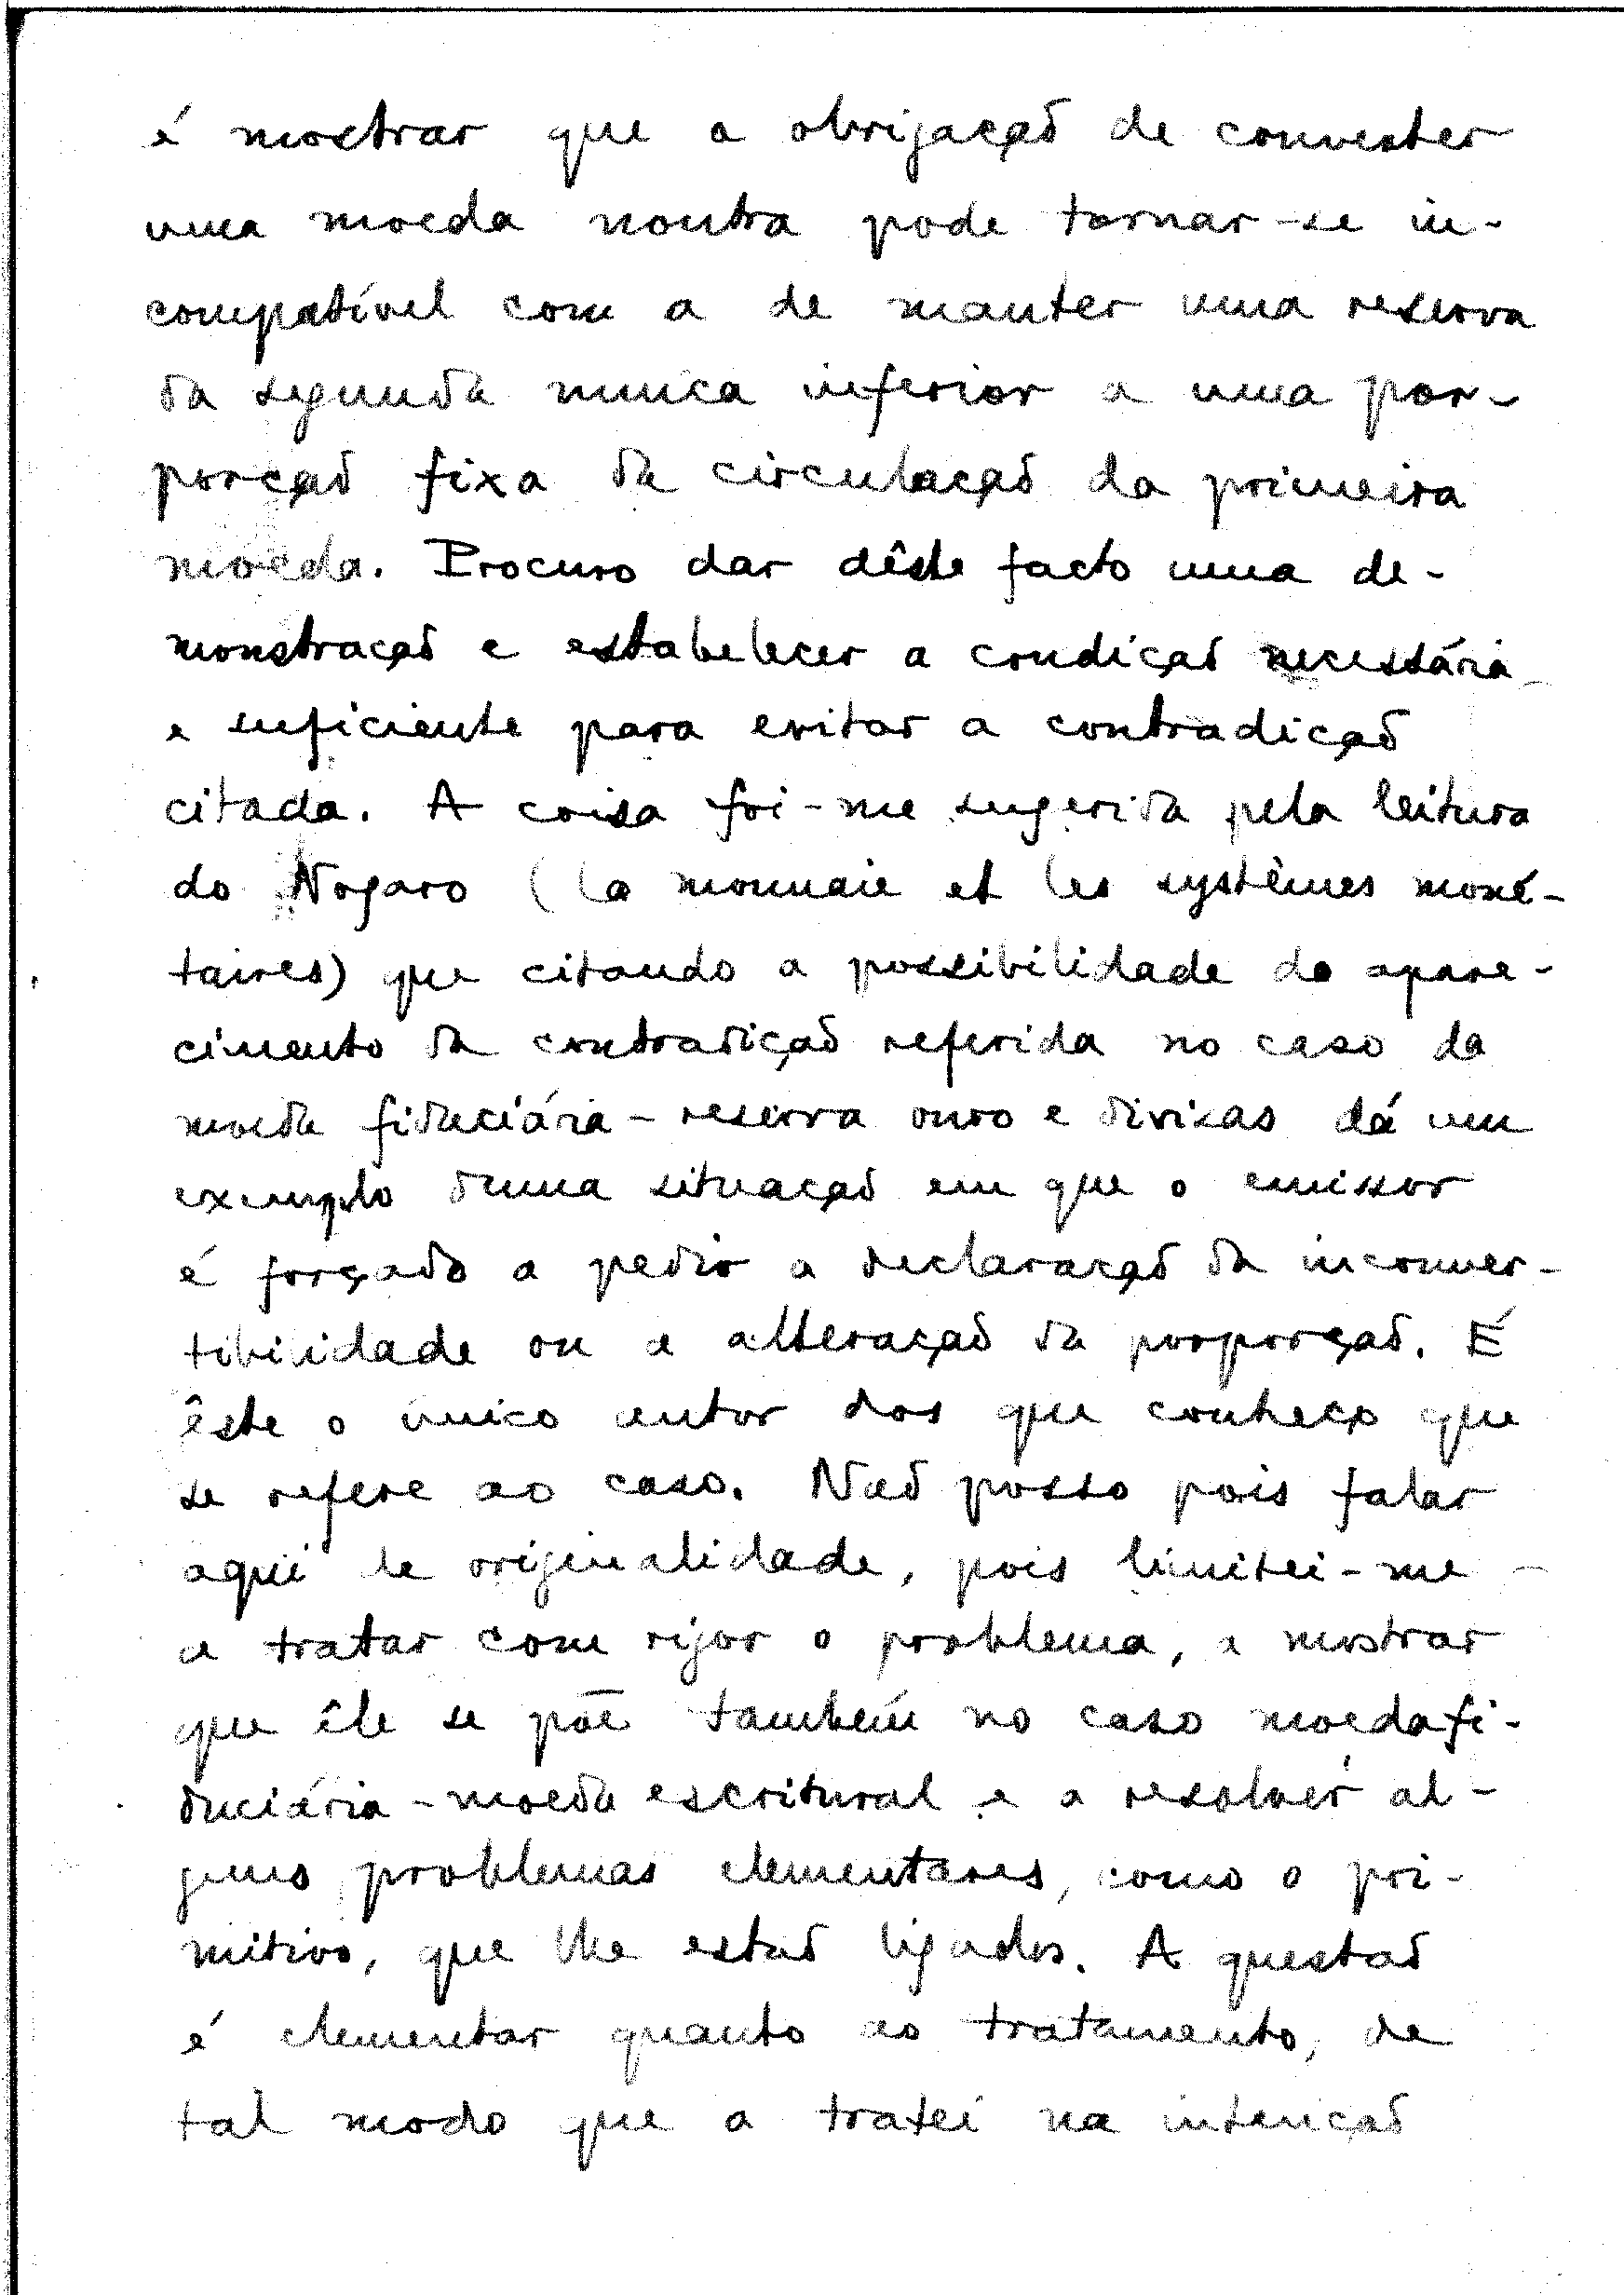 é mostrar que a obrigação de converter
uma moeda noutra pode tornar-se in-
compatível com a de manter uma reserva
da segunda nunca inferior a uma por-
porção fixa da circulação da primeira
moeda. Procuro dar dêste facto uma de-
monstração e estabelecer a condição necessária
e suficiente para evitar a contradição
citada. A coisa foi-me sugerida pela leitura
do Nogaro (la monnaie et les systèmes moné-
taires) que citando a possibilidade do apare-
cimento da contradição referida no caso da
moeda fiduciária - reserva ouro e divisas dá um
exemplo duma situação em que o emissor
é forçado a pedir a declaração da inconver-
tibilidade ou a alteração da porporção. É
êste o único autor dos que conheço que
se refere ao caso. Não posso pois falar
aqui de originalidade, pois limitei-me
a tratar com rigor o problema, a mostrar
que êle se põe também no caso moeda fi-
duciária - moeda escritural e a resolver al-
guns problemas elementares, como o pri-
mitivo, que lhe estão ligados. A questão
é elementar quanto ao tratamento, de
tal modo que a tratei na intenção